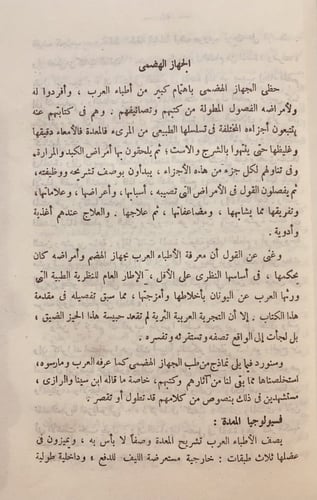 الجهاز الهضمى
حظى الجهاز الهضمى باهتمام كبير من أطباء العرب ، وأفردوا له
ولأمراضه الفصول المطولة من كتبهم وتصانيفهم . وهم فى كتابتهم عنه
يتتبعون أجزاءه المختلفة فى تسلسلها الطبيعى من المرىء فالمعدة فالأمعاء دقيقها
وغليظها حتى ينتهوا بالشرج والاست ؛ ثم يلحقون بها أمراض الكبد والمرارة.
وفى تناولهم لكل جزء من هذه الأجزاء ، يبدأون بوصف تشريحه ووظيفته،
ثم يفصلون القول فى الأمراض التى تصيبه ، أسبابها، وأعراضها ، وعلاماتها،
وتفريقها مما يشابهها ، ومضاعفاتها، ثم علاجها . والعلاج عندهم أغذية
وأدوية .
وغنى عن القول أن معرفة الأطباء العرب بجهاز الهضم وأمراضه كان
يحكمها ، فى أساسها النظرى على الأقل ، الإطار العام للنظرية الطبية التى
ورثها العرب عن اليونان بأخلاطها وأمزجتها ، مما سبق تفصيله فى مقدمة
هذا الكتاب . إلا أن التجربة العربية الثرية لم تقعد حبيسة هذا الحيز الضيق ،
بل لجأت إلى الواقع تصفه وتستقرئه وتفسره .
وسنورد فيما يلى نماذج من طب الجهاز الهضمى كما عرفه العرب ومارسوه،
استخلصناها مما بقى لنا من آثارهم وكتبهم، خاصة ما قاله ابن سينا والرازى ،
مستشهدين فى ذلك بنصوص من كلامهم قد تطول أو تقصر .
فسيولوجيا المعدة :
يصف الأطباء العرب تشريح المعدة وصفاً لا بأس به ، ويميزون فى
عضلها ثلاث طبقات : خارجية مستعرضة الليف للدفع ؛ وداخلية طولية